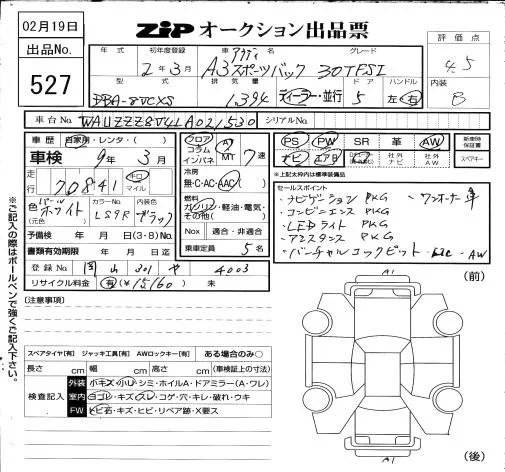 02月19日
ZIP オークション出品票
出品No.
527
年式 初年度登録 車名 グレード 評価点
2年3月 アウディ A3スポーツバック 30TFSI 4.5
型式 排気量 ドア ハンドル 内装
DBA-8VCXS 1,394 ディーラー・並行 5 左・右 B
車台No. WAUZZZ8V4LA021530 シリアルNo.
車歴 自家用・レンタ・( )
車検 4年3月
走行 70841 キロ マイル
色 パールホワイト (元色) カラーNo. LS9R 内装色 ブラック
予備検 年 月 日(3・8)No.
書類有効期限 年 月 日迄
登録No. 岡山 301 や 4003
リサイクル料金 有(¥15160) 未
フロア コラム インパネ AT MT 7速
冷房 無・C・AC・AAC( )
燃料 ガソリン・軽油・電気・その他( )
Nox 適合・非適合
乗車定員 5名
PS PW SR 革 AW 新車時保証書
ナビ エアB 社外ナビ 社外AW スペアキー
*上記太枠内は標準装備品
セールスポイント
・ナビゲーション PKG ・ワンオーナー車
・コンビニエンス PKG
・LEDライト PKG
・アシスタンス PKG
・バーチャルコックピット ・AW
[注意事項]
スペアタイヤ[有] ジャッキ工具[有] AWロックキー[有] ある場合のみ○
長さ cm 幅 cm 高さ cm (車検証上の寸法)
検査記入
外装 小キズ・小U・シミ・ホイルA・ドアミラー(A・ワレ)
室内 ヨゴレ・キズ・スレ・コゲ・穴・キレ・破れ・ウキ
FW トビ石・キズ・ヒビ・リペア跡・X要ス
A1
(前)
A1
(後)
※ご記入の際はボールペンで強くご記入下さい。